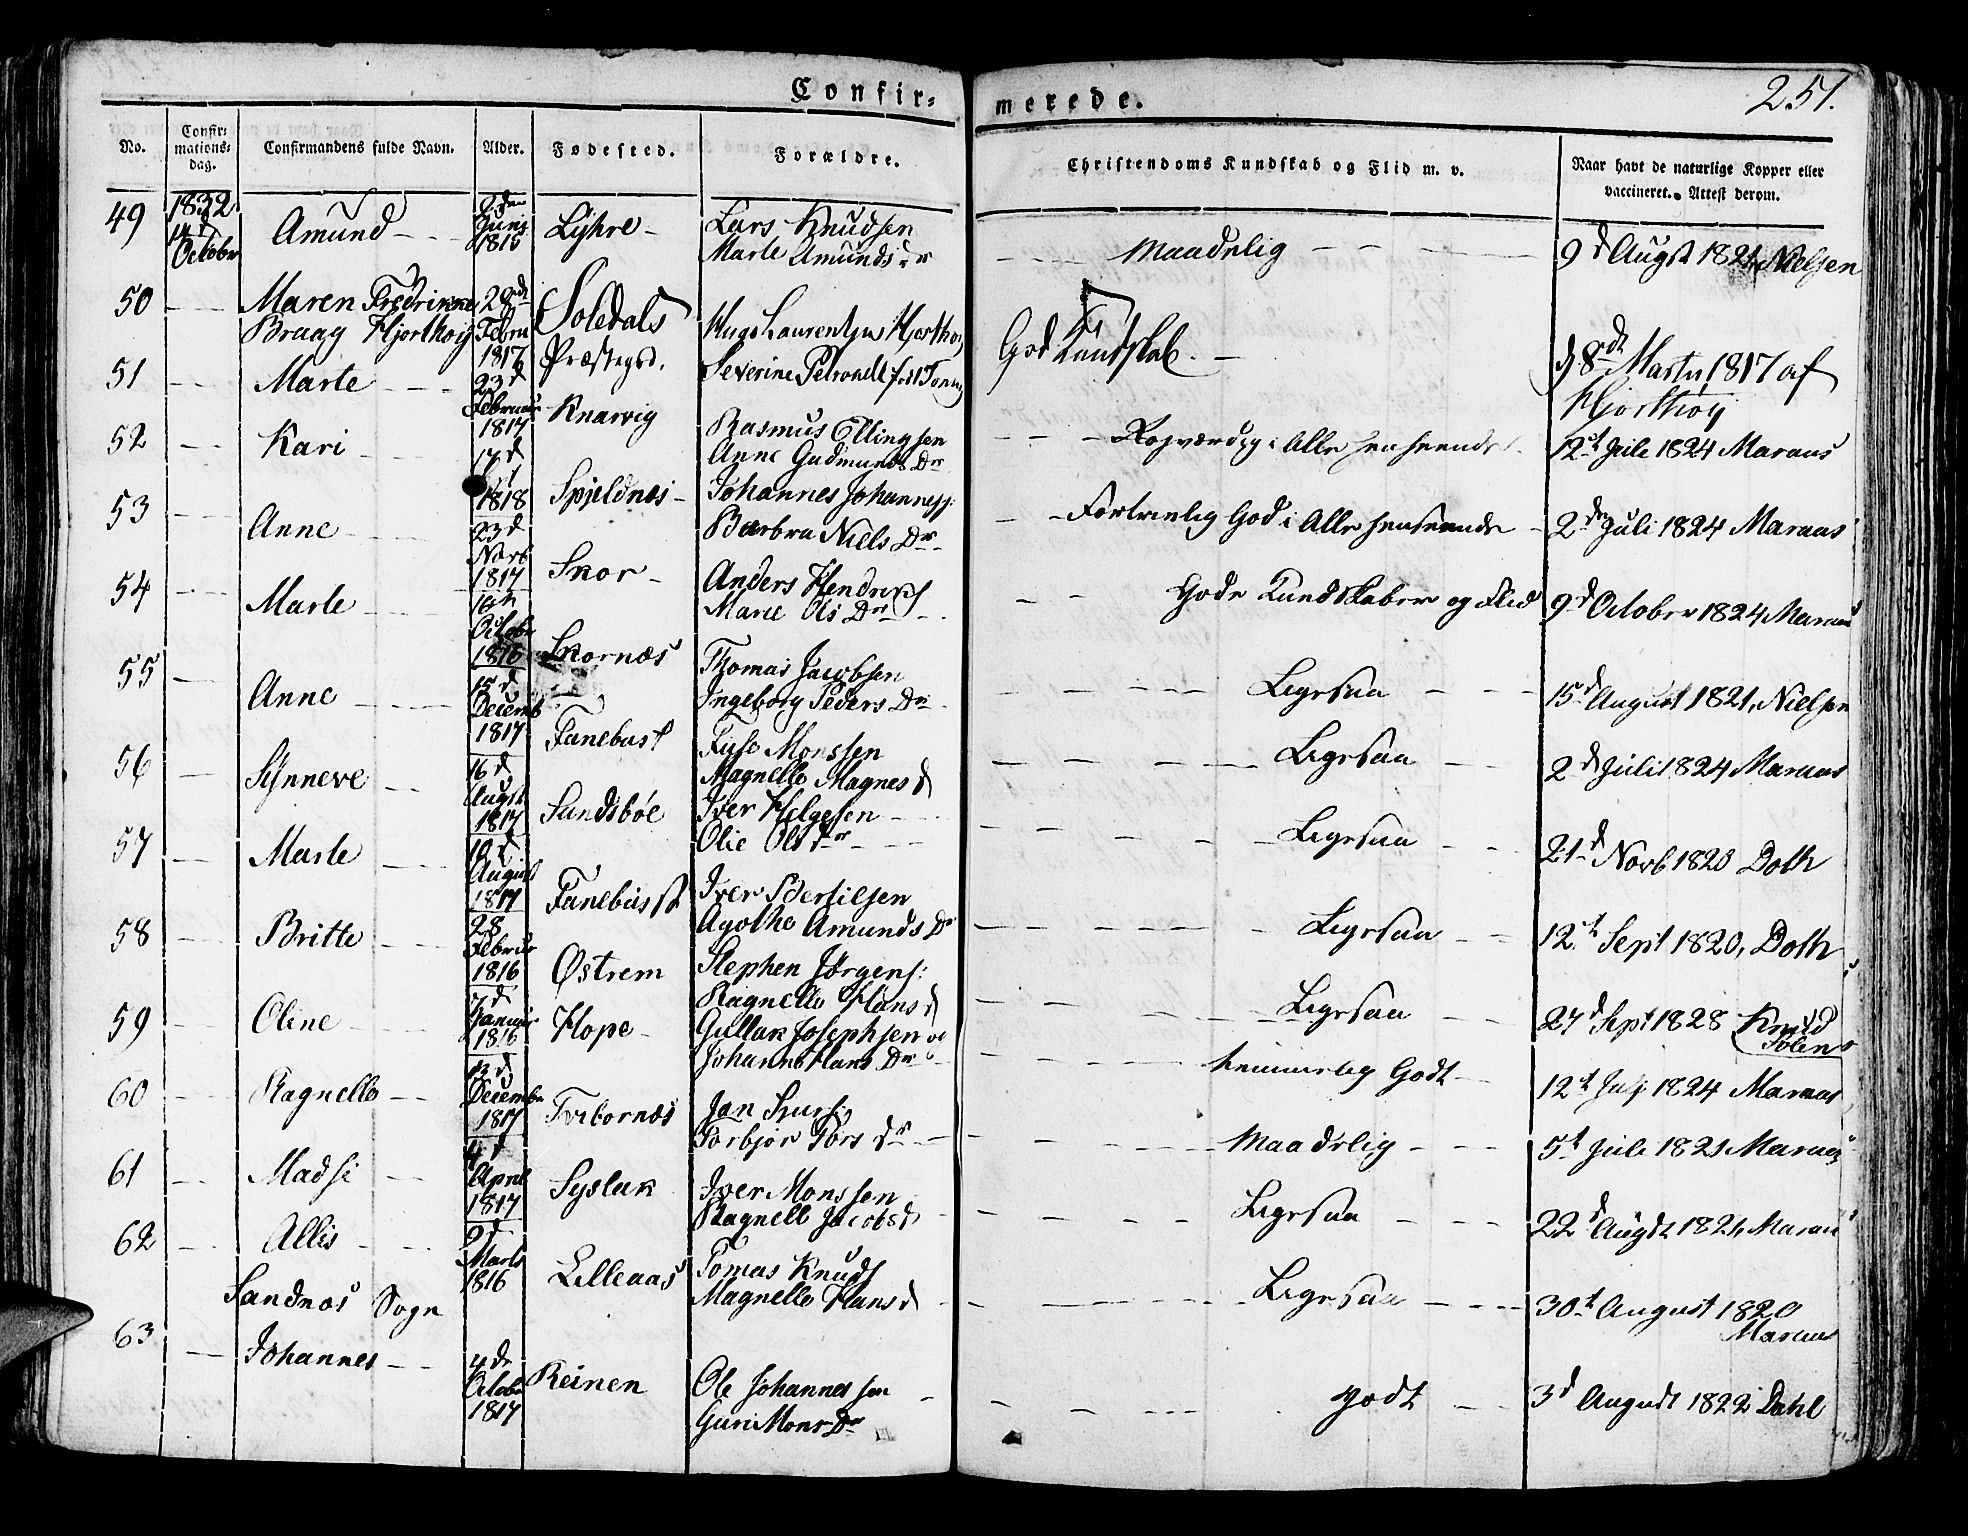 Confir=
merede.
251.
No.
Confir=
mations=
dag.
Confirmandens fulde Navn.
Alder.
Fødested.
Forældre.
Christendoms Kundskab og Flid m. v.
Naar havt de naturlige Kopper eller
vaccineret. Attest derom.
49 1832 14 d October Amund Juni Lyhre Lars Knudsen
Marte Amunds Dr
Maadelig 9 d Augst 1821, Nielsen
50 Maren Fredrikke 28de Februar 1817 Soledals Præstegrd.
Braag Hjorthøy
Hugo Laurentyus Hjorthøy
Severine Petronell
God Kundskab. d 8de Marts 1817 af
Hjorthøy
51 Marte 23 d Februar 1817 Knarvig Rasmus Ellingsen
Anne Gudmunds Dr
Rosværdig i Alle henseender 12t Juli 1824 Maraus
52 Kari 17 d 1818 Spjeldnæs Johannes Johanness:
Barbra Niels Dr
Fortrinlig God i Alle henseende 2 den Juli 1824 Maraas
53 Anne 23 d Novb 1817 Skor Anders Hendriks
Marie Ols Dr
Gode Kundskaber og Flid 9 d October 1824 Maraus
54 Marte October 1816 Skornæs Thomas Jacobsen
Ingeborg Peders Dr
Ligesaa 15 d August 1821, Nielsen
55 Anne 15 d Decemb 1817 Fanebust Fuse Monssen
Magnelle Magnes d
Ligesaa 2 d Juli 1824 Maraas
56 Synneve 16 d Augst 1817 Sandsbøe Iver Helgesen
Olie Ols dr
Ligesaa 21 d Novb 1820 Doth
57 Marte August 1817 Fanebust Iver Bertilsen
Agothe Amunds Dr
Ligesaa 12t Sept 1820, Doth
58 Britte 28 Februar 1816 Østrem Stephen Jørgens:
Ragnelle Hans d
Ligesaa 27 d Sept 1828 Knud
59 Oline 7 d Januar 1816 Hope Gullak Josephsen og
Johanne Hans Dr
temmelig Godt 12t Juli 1824 Maraas
60 Ragnelle 13 d December 1817 Tvebornæs Jan
Torbjør Tors dr
Maadelig 5t Juli 1821 Maraus
61 Madsi 4 d April 1817 Syslak Iver Monssen
Ragnell Jacobs d
Ligesaa 22 d Augst 1821, Maraus
62 Allis 9 d Marts 1816 Lilleaas Tomas Knuds
Magnelle Hans d
Ligesaa 30t August 1820
Maraus
Sandnæs Sogn
63 Johannes 4 de October 1817 Reinen Ole Johannessen
Guri Mons Dr
Godt 3 d August 1822 Dahl